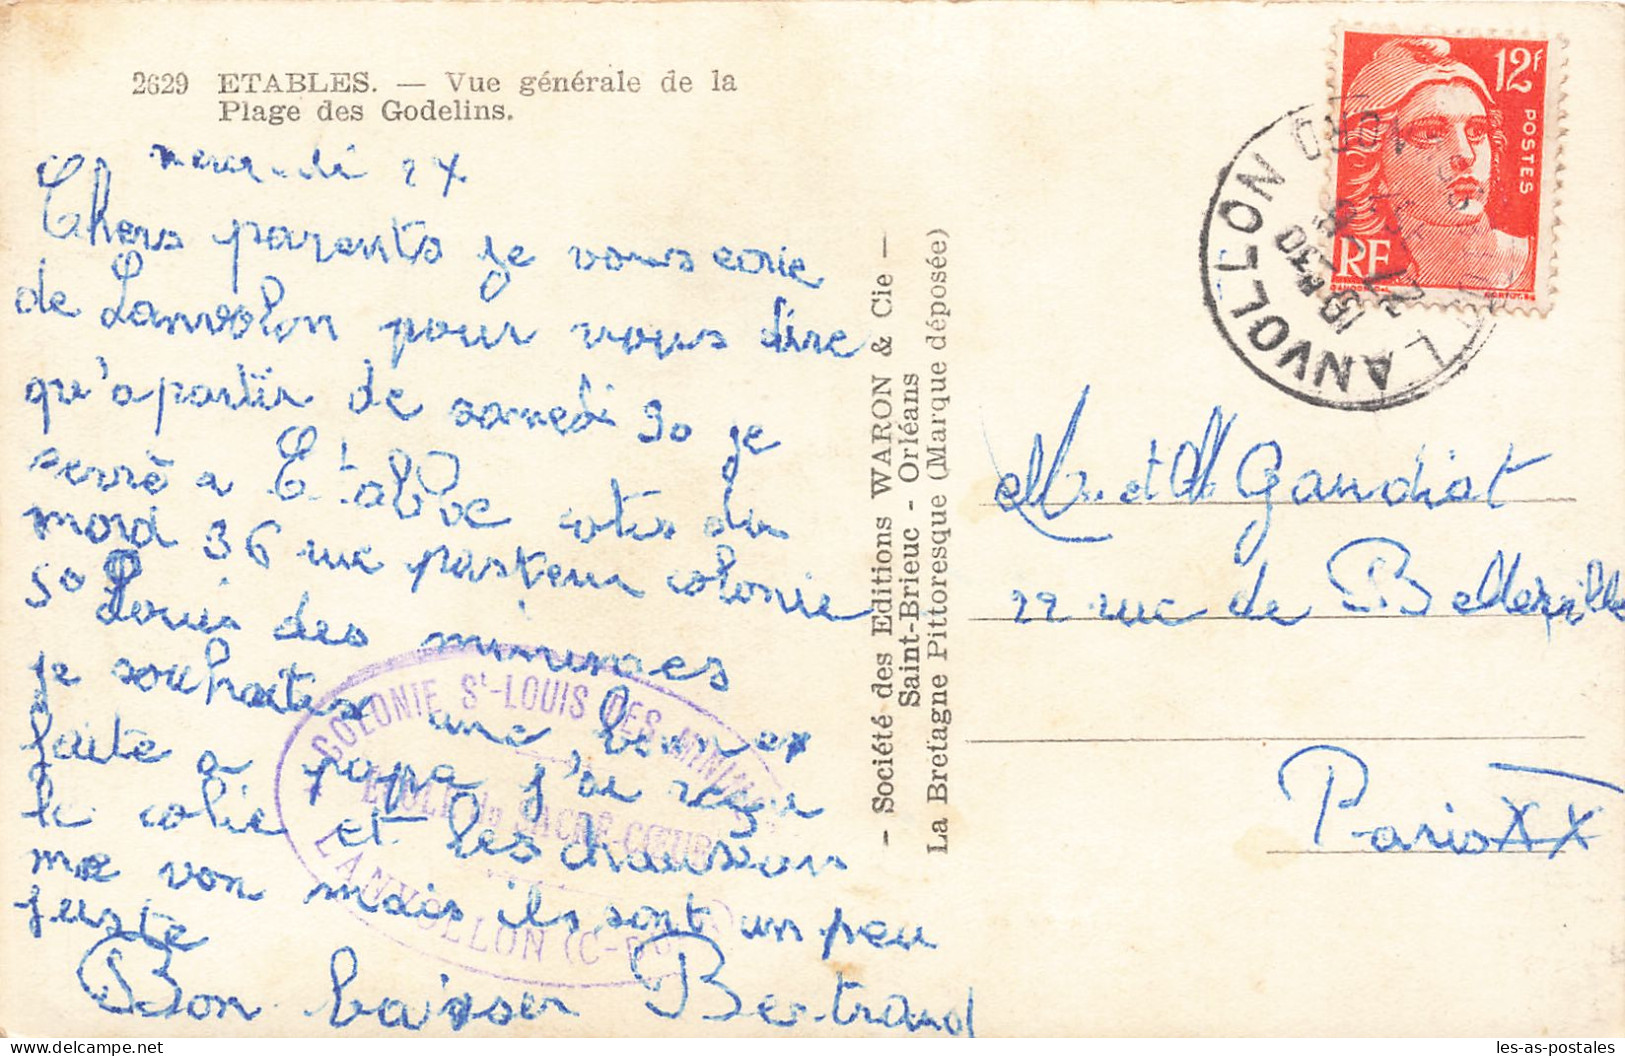 2629 ETABLES. — Vue générale de la
Plage des Godelins.
mercredi 27
Chers parents je vous ecrie
de Lanvolon pour vous dire
qu'a partir de samedi 30 je
serrè a Etable cotes du
nord 36 rue pasteur colonie
St Louis des minimes
je souhaites une bonne
faite a papa j'ai reçu
le colie et les chausson
me von mais ils sont un peu
juste
Bon baiser Bertrand
COLONIE St-LOUIS DES MINIMES
ECOLE du SACRÉ-CŒUR
LANVOLLON (C-du-N)
- Société des Editions WARON & Cie -
Saint-Brieuc - Orléans
La Bretagne Pittoresque (Marque déposée)
12f
POSTES
RF
LANVOLLON
NORD
Mr et Mme Gandiot
22 rue de Belleville
Paris XX
les-as-postales
delcampe.net